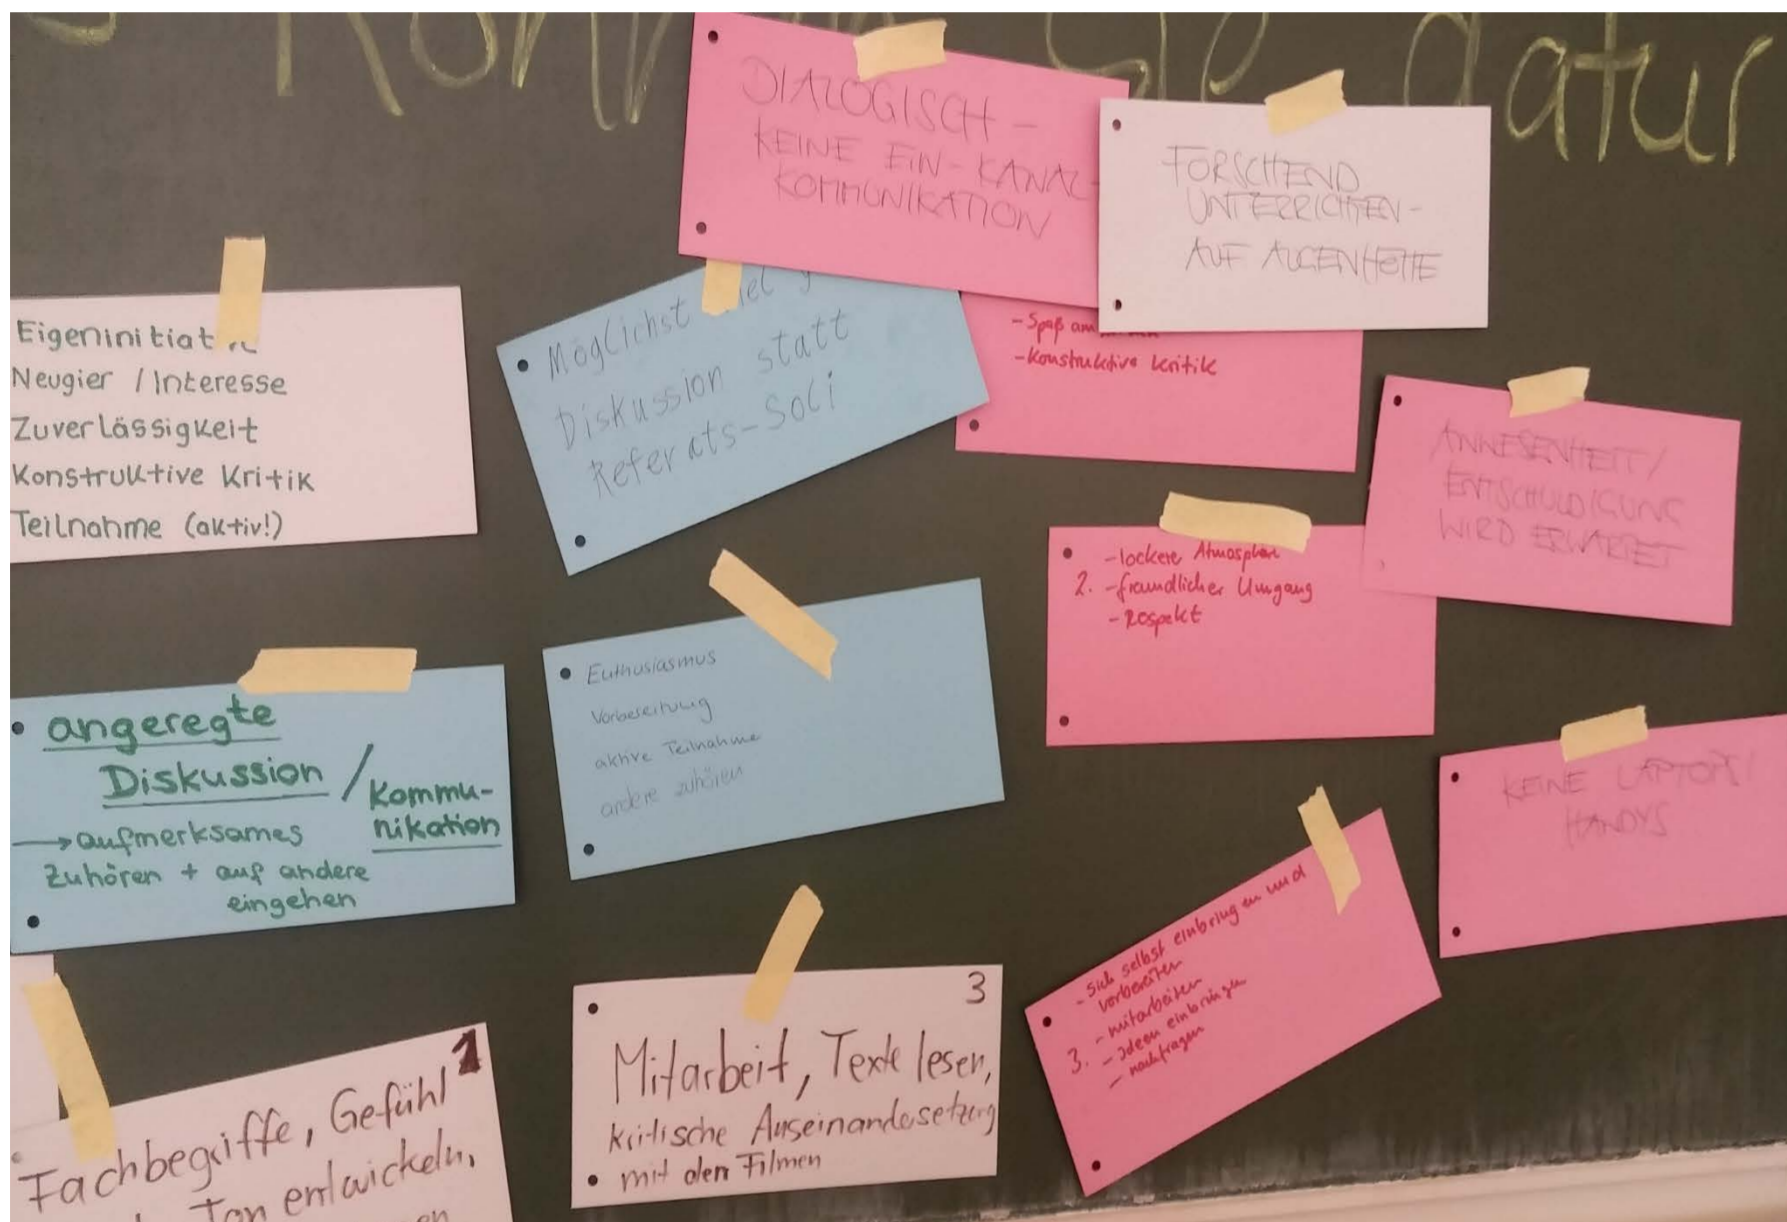 DIALOGISCH -
KEINE EIN-KANAL-
KOMMUNIKATION
FORSCHEND
UNTERRICHTEN-
AUF AUGENHÖHE
Eigeninitiat
Neugier / Interesse
Zuverlässigkeit
Konstruktive Kritik
Teilnahme (aktiv!)
Möglichst
Diskussion statt
Referats-Soli
- Spaß am
- Konstruktive Kritik
ANWESENHEIT/
ENTSCHULDIGUNG
WIRD ERWARTET
- lockere Atmosphäre
2. - freundlicher Umgang
- Respekt
angeregte
Diskussion /
Kommu-
nikation
→ aufmerksames
Zuhören + auf andere
eingehen
Enthusiasmus
Vorbereitung
aktive Teilnahme
andere zuhören
KEINE LAPTOPS/
HANDYS
- sich selbst einbringen und
vorbereiten
- mitarbeiten
3. - Ideen einbringen
- nachfragen
3
Mitarbeit, Texte lesen,
kritische Auseinandersetzung
mit den Filmen
1
Fachbegriffe, Gefühl
Ton entwickeln,